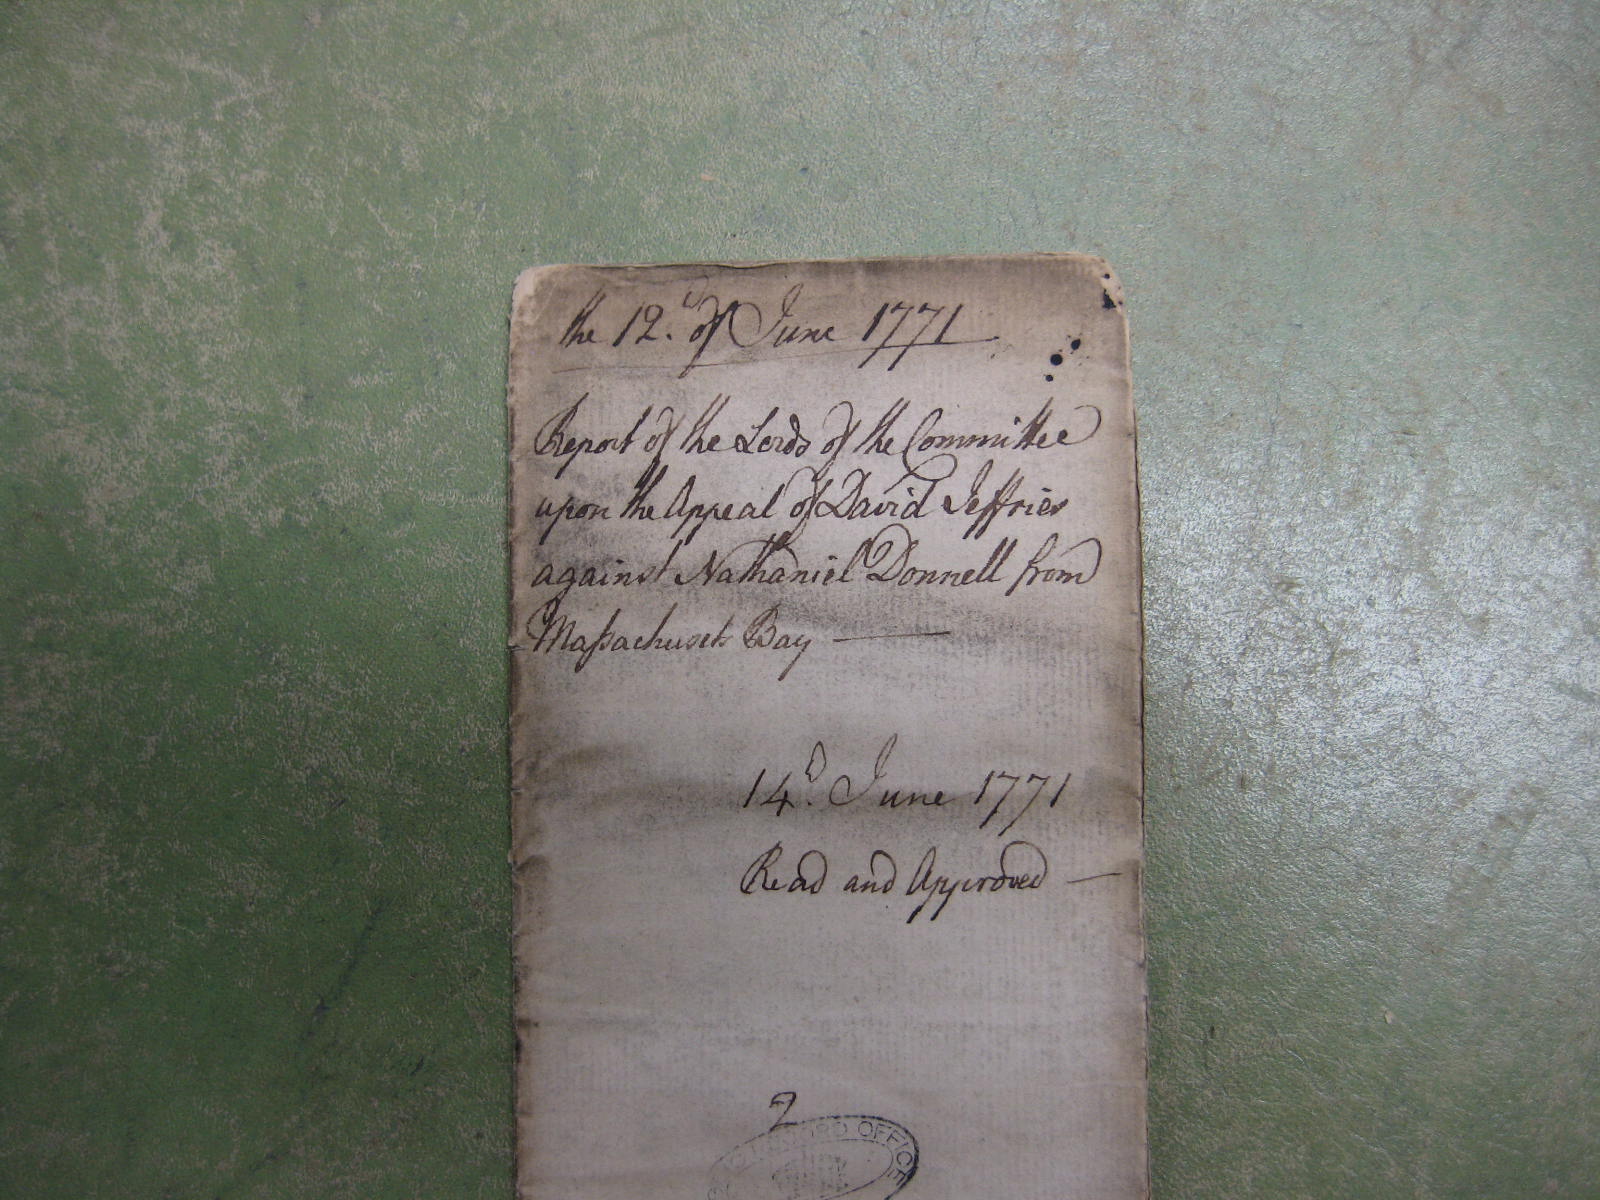 the 12.th of June 1771
Report of the Lords of the Committee
upon the Appeal of David Jeffries
against Nathaniel Donnell from
Maſsachusets Bay
14.th June 1771
Read and Approved
2
RECORD OFFICE